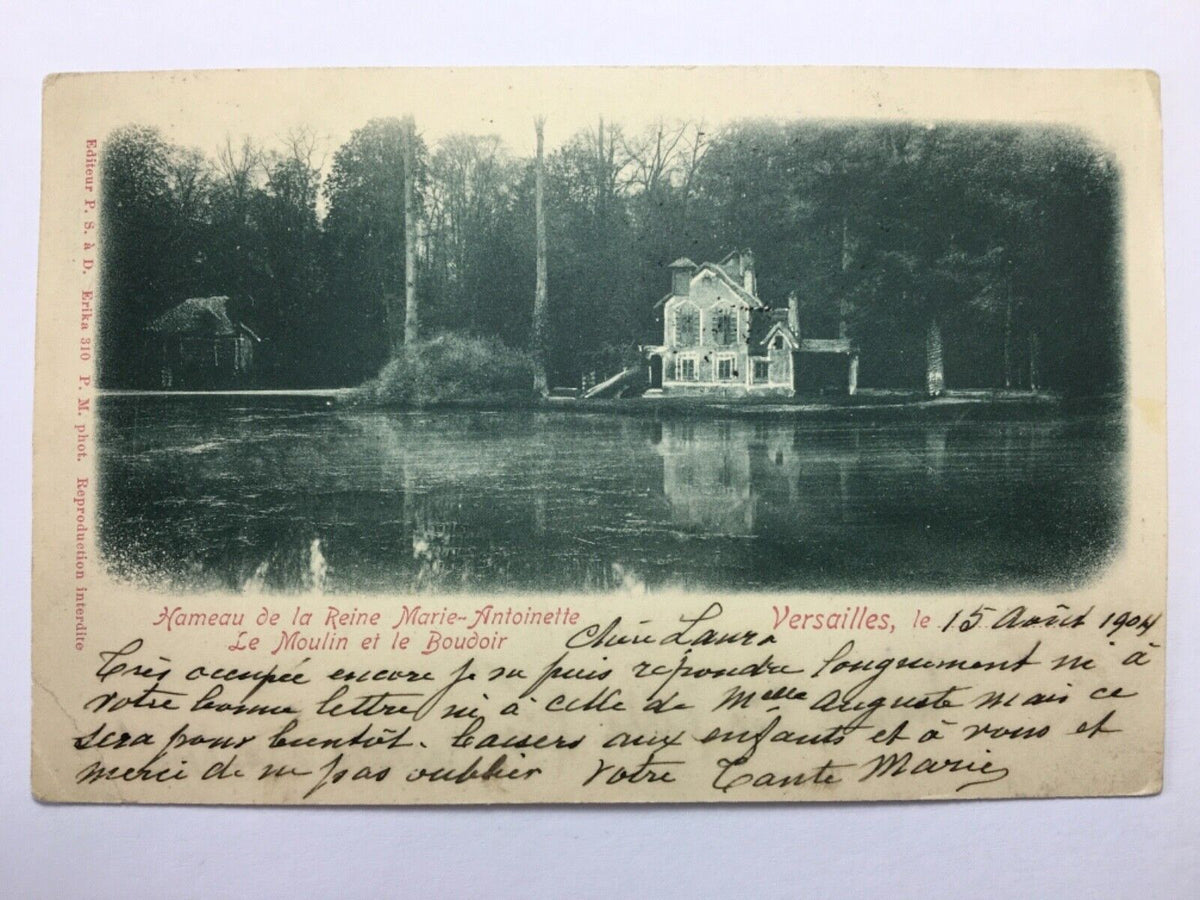 Editeur P. S. à D. Erika 310 P. M. phot. Reproduction interdite
Hameau de la Reine Marie-Antoinette
Le Moulin et le Boudoir
Versailles, le 15 Août 1904
Chère Laura
Très occupée encore je ne puis répondre longuement ni à
votre bonne lettre ni à celle de Melle Auguste mais ce
sera pour bientôt. Baisers aux enfants et à vous et
merci de ne pas oublier Votre Tante Marie